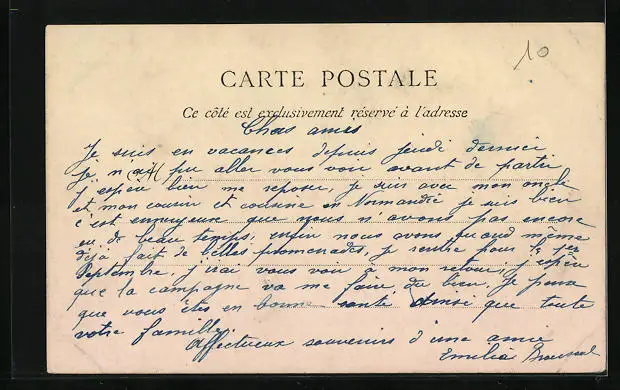 10
CARTE POSTALE
Ce côté est exclusivement réservé à l'adresse
Chers amis
Je suis en vacances depuis jeudi dernier
je n'ai pu aller vous voir avant de partir
j'espère bien me reposer, je suis avec mon oncle
et mon cousin et cousine en Normandie je suis bien
c'est ennuyeux que nous n'avons pas encore
eu de beau temps, enfin nous avons quand même
déjà fait de belles promenades, je rentre pour le 1er
Septembre, j'irai vous voir à mon retour, j'espère
que la campagne va me faire du bien, je pense
que vous êtes en bonne santé ainsi que toute
votre famille.
Affectueux souvenirs d'une amie
Emilia